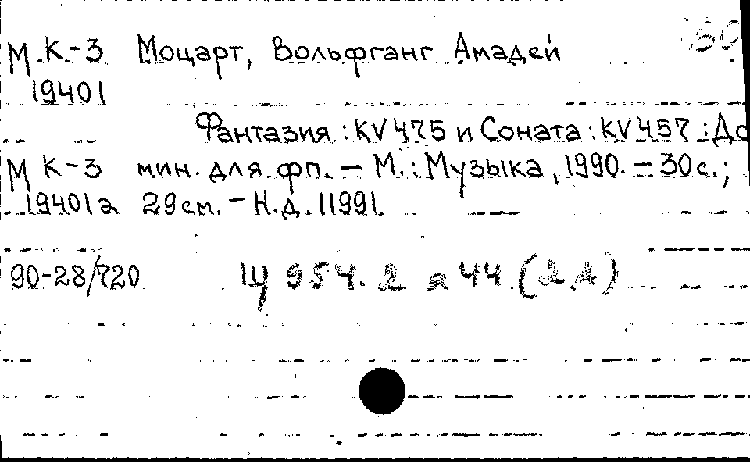 М К-3 Моцарт, Вольфганг Амадей
19401
Фантазия : KV 475 и Соната : KV 457 : До
М К-3 мин. для фп. – М. : Музыка, 1990. – 30с. ;
19401а 29см. – Н.д. 11991.
90-28/720 Щ 954.2 я 44 (2 А)